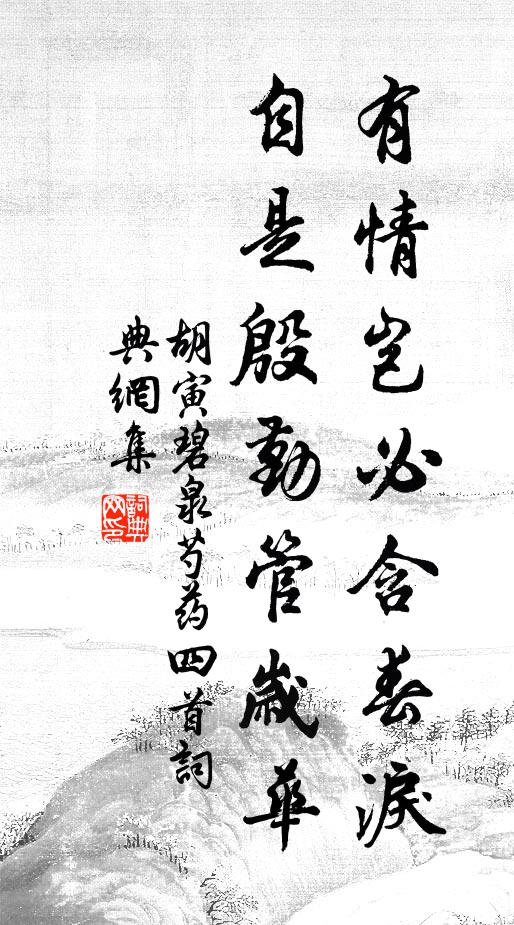 有情岂必含春淚
自是殷勤管歲華
胡寅碧泉芍药四首詞
典網集
詞典網印